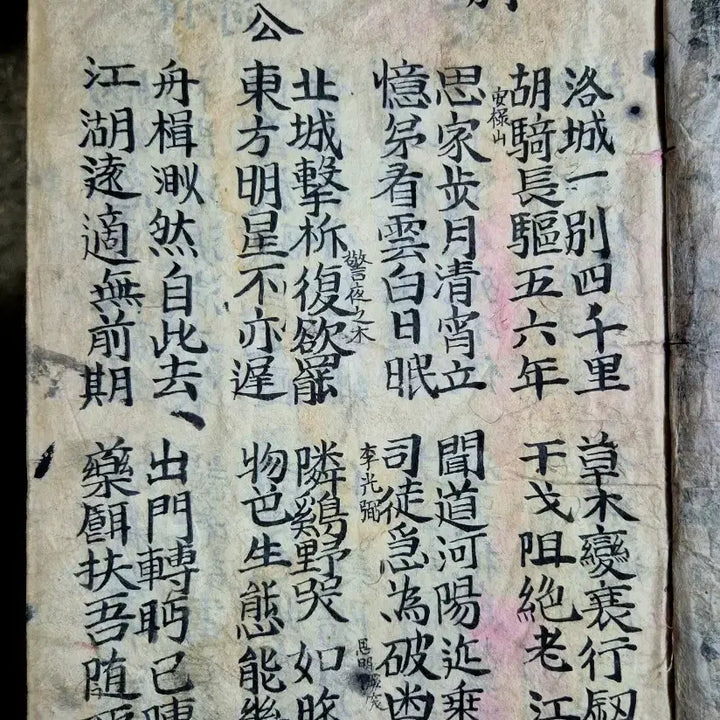 公
洛城一別四千里
胡騎長驅五六年
安祿山
草木變衰行劔
干戈阻絕老江
思家步月清宵立
憶弟看雲白日眠
聞道河陽近乘
司徒急為破幽
李光弼
思明
北城擊柝復欲罷
警夜之木
東方明星不亦遲
隣鷄野哭如昨
物色生態能幾
舟楫渺然自此去、
江湖遠適無前期
出門轉眄已陳
藥餌扶吾随